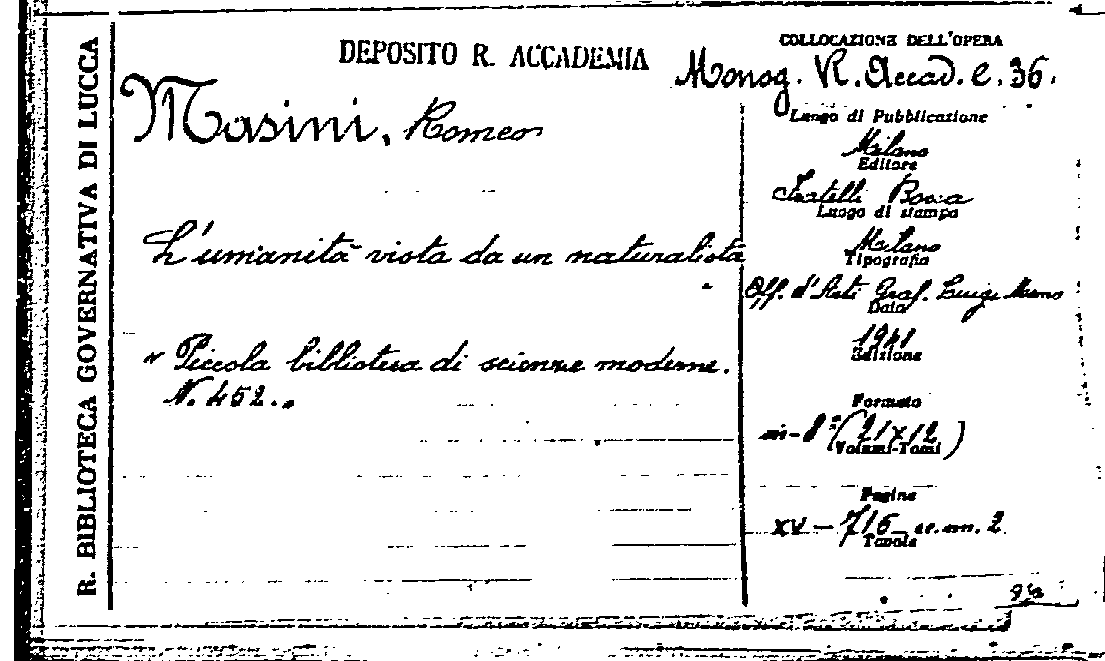 R. BIBLIOTECA GOVERNATIVA DI LUCCA
DEPOSITO R. ACCADEMIA
COLLOCAZIONE DELL'OPERA
Monog. R. Accad. e. 36.
Masini, Romeo
Luogo di Pubblicazione
Milano
Editore
Fratelli Bocca
Luogo di stampa
L'umanità vista da un naturalista
Milano
Tipografia
Off. d'Arti Graf. Luigi
Data
1941
Edizione
"Piccola biblioteca di scienze moderne.
N. 452."
Formato
in-8° (21x12)
Volumi-Tomi
Pagine
XV - 716
Tavole